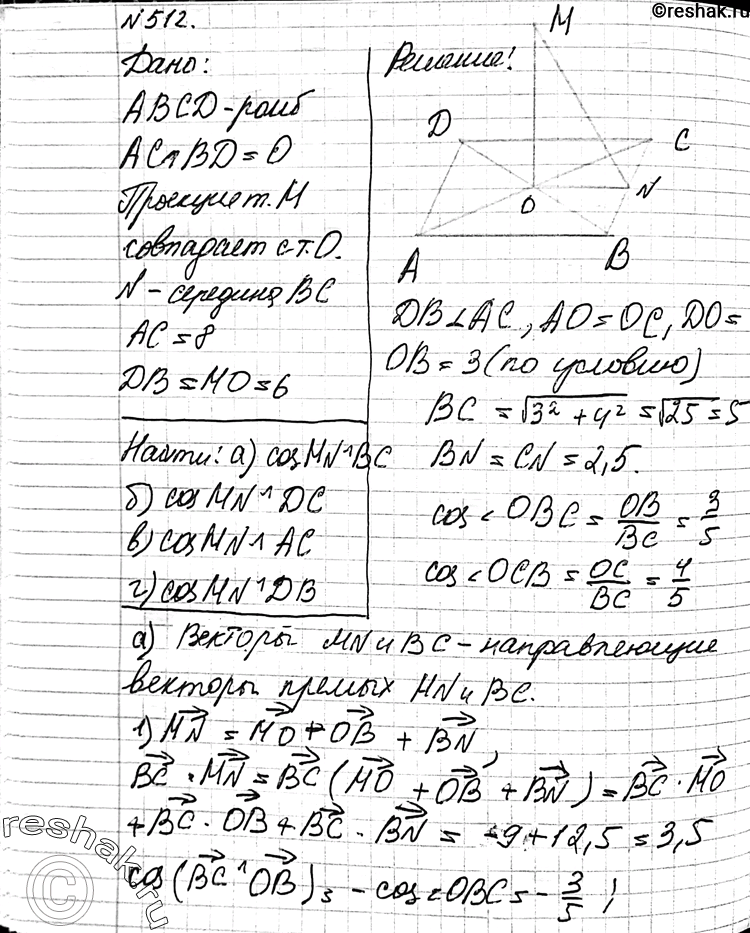 ©reshak.ru
№512.
Дано:
ABCD-ромб
AC∩BD=O
Проекция т.M
совпадает с т.O.
N - середина BC
AC=8
DB=MO=6
Найти: а) cos MN^BC
б) cos MN^DC
в) cos MN^AC
г) cos MN^DB
Решение!
M
D
C
O
N
A
B
DB⊥AC, AO=OC, DO=
OB=3 (по условию)
BC=√(3²+4²)=√25=5
BN=CN=2,5.
cos∠OBC=OB/BC=3/5
cos∠OCB=OC/BC=4/5
а) Векторы MN и BC - направляющие
векторы прямых MN и BC.
1) MN⃗ = MO⃗ + OB⃗ + BN⃗,
BC⃗ · MN⃗ = BC⃗ (MO⃗ + OB⃗ + BN⃗) = BC⃗ · MO⃗
+ BC⃗ · OB⃗ + BC⃗ · BN⃗ = -9+12,5=3,5
cos(BC⃗ ^ OB⃗) = -cos∠OBC = -3/5 ;
reshak.ru
©